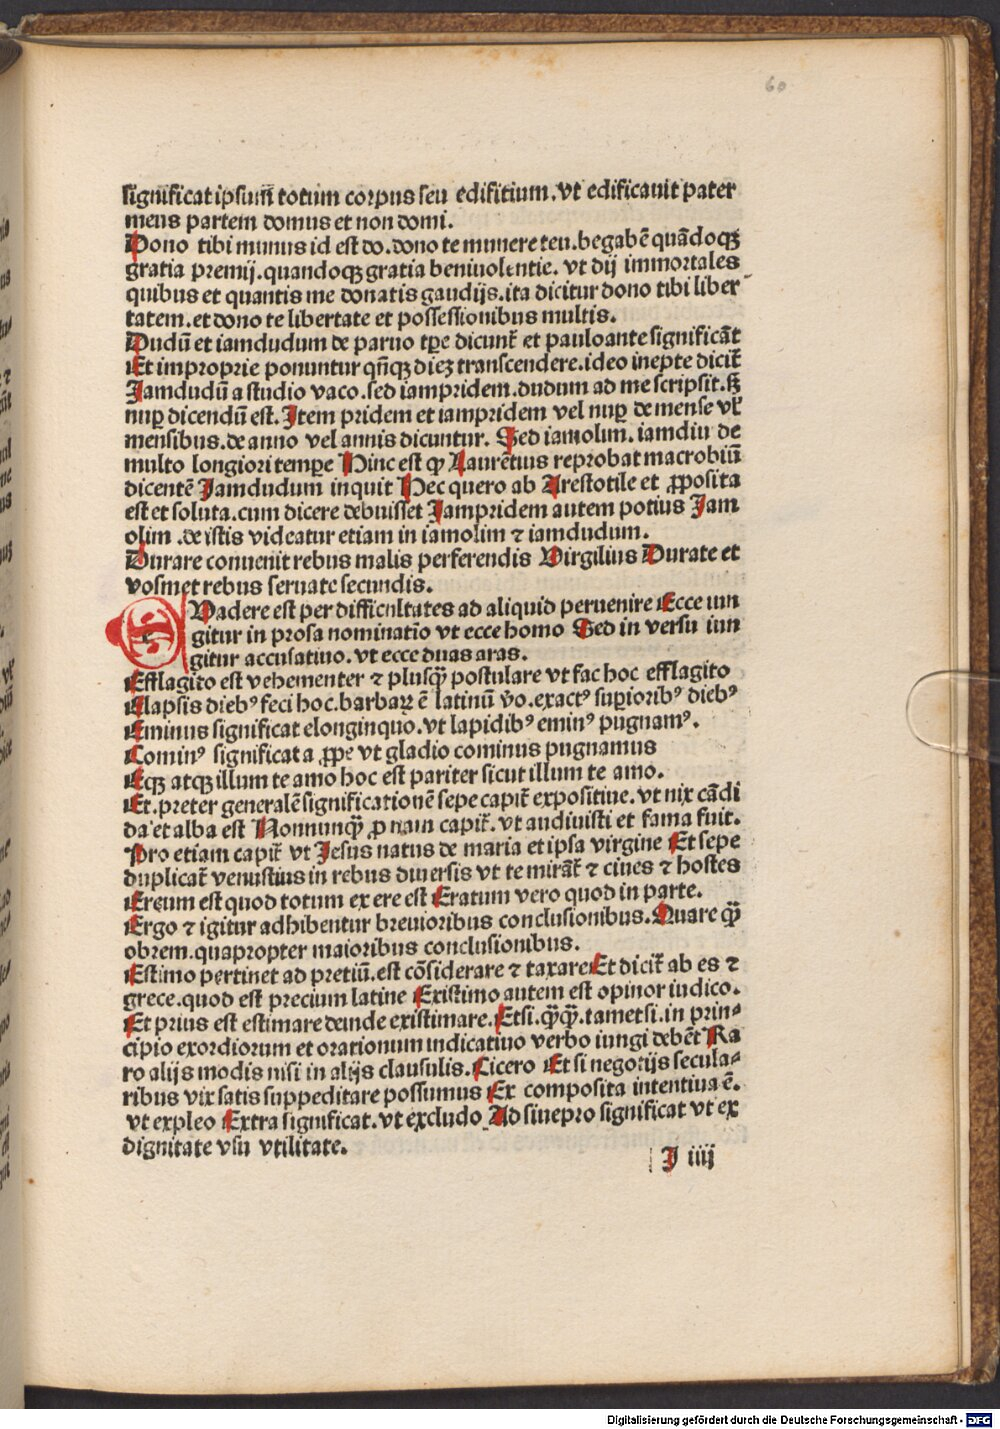 60
significat ipsum̄ totum corpus seu edifitium. vt edificauit pater
meus partem domus et non domi.
Dono tibi munus id est do. dono te munere teu. begabē quādoqꝫ
gratia premij. quandoqꝫ gratia beniuolentie. vt dij immortales
quibus et quantis me donatis gaudijs. ita dicitur dono tibi liber
tatem. et dono te libertate et possessionibus multis.
Dudū et iamdudum de paruo tp̄e dicunt᷑ et pauloante significāt
Et improprie ponuntur qn̄qꝫ dieꝫ transcendere. ideo inepte dicit᷑
Jamdudū a studio vaco. sed iampridem. dudum ad me scripsit. sꝫ
nup̄ dicendū est. Item pridem et iampridem vel nup̄ de mense vl᷑
mensibus. de anno vel annis dicuntur. Sed iamolim. iamdiu de
multo longiori temp̄e Hinc est ꝙ Laurētius reprobat macrobiū
dicentē Jamdudum inquit Hec quero ab Arestotile et ꝓposita
est et soluta. cum dicere debuisset Jampridem autem potius Jam
olim .de istis videatur etiam in iamolim ⁊ iamdudum.
Durare conuenit rebus malis perferendis Virgilius Durate et
vosmet rebus seruate secundis.
e Vadere est per difficultates ad aliquid peruenire Ecce iun
gitur in prosa nominatio vt ecce homo Sed in versu iun
gitur accusatiuo. vt ecce duas aras.
Efflagito est vehementer ⁊ plusqꝫ̄ postulare vt fac hoc efflagito
Elapsis diebꝰ feci hoc. barbaꝝ ē latinū v̊o. exactꝭ sup̄ioribꝰ diebꝰ
Eminus significat elonginquo. vt lapidibꝰ eminꝰ pugnamꝰ.
Cominꝰ significat a ꝓpe vt gladio cominus pugnamus
Eqꝫ atqꝫ illum te amo hoc est pariter sicut illum te amo.
Et. preter generalē significationē sepe capit᷑ expositiue. vt nix cādi
da et alba est Nonnunqꝫ̄ ꝓ nam capit᷑. vt audiuisti et fama fuit.
Pro etiam capit᷑ vt Jesus natus de maria et ipsa virgine Et sepe
duplicat᷑ venustius in rebus diuersis vt te mirāt᷑ ⁊ ciues ⁊ hostes
Ereum est quod totum ex ere est Eratum vero quod in parte.
Ergo ⁊ igitur adhibentur breuioribus conclusionibus. Quare qꝫ̄
obrem. quapropter maioribus conclusionibus.
Estimo pertinet ad pretiū. est cōsiderare ⁊ taxare Et dicit᷑ ab es ⁊
grece. quod est precium latine Existimo autem est opinor iudico.
Et prius est estimare deinde existimare. Etsi. qꝫ̄qꝫ̄. tametsi. in prin⸗
cipio exordiorum et orationum indicatiuo verbo iungi debēt Ra
ro alijs modis nisi in alijs clausulis. Cicero Et si negotijs secula⸗
ribus vix satis suppeditare possumus Ex composita intentiua ē.
vt expleo Extra significat. vt excludo Ad siue pro significat vt ex
dignitate vsu vtilitate.
J iiij
Digitalisierung gefördert durch die Deutsche Forschungsgemeinschaft - DFG